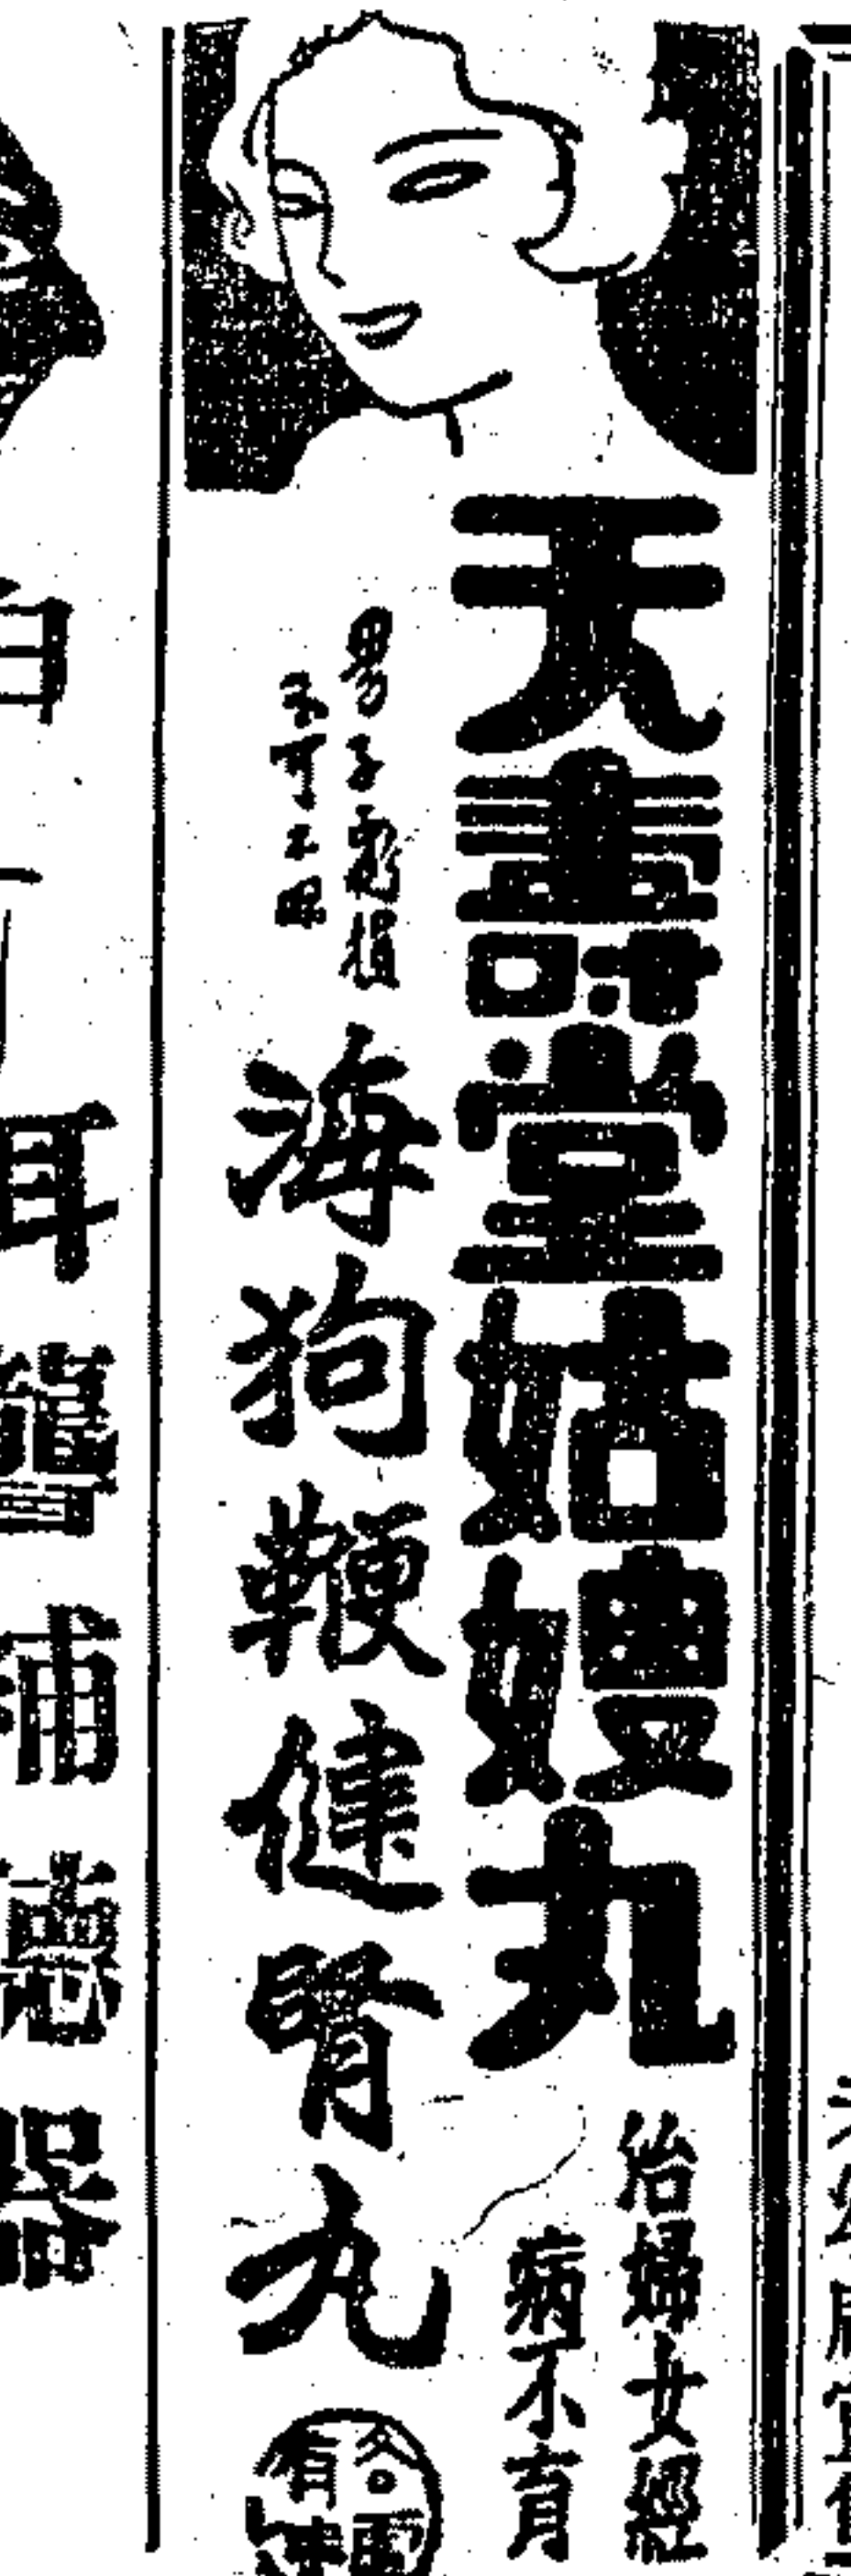 天壽堂姑嫂丸
治婦女經
病不育
男子虧損
不可不服
海狗鞭健腎丸
各
有
耳聾補器